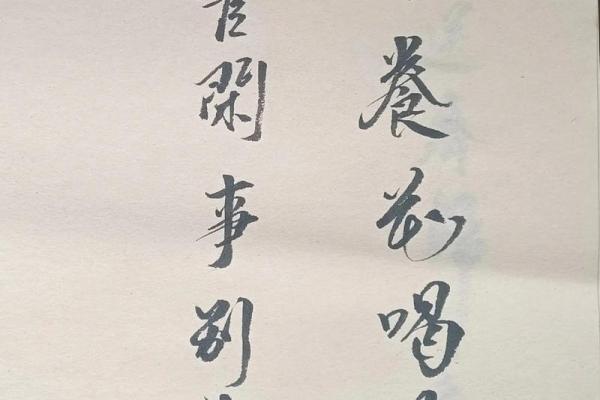 養花喝
閑事别